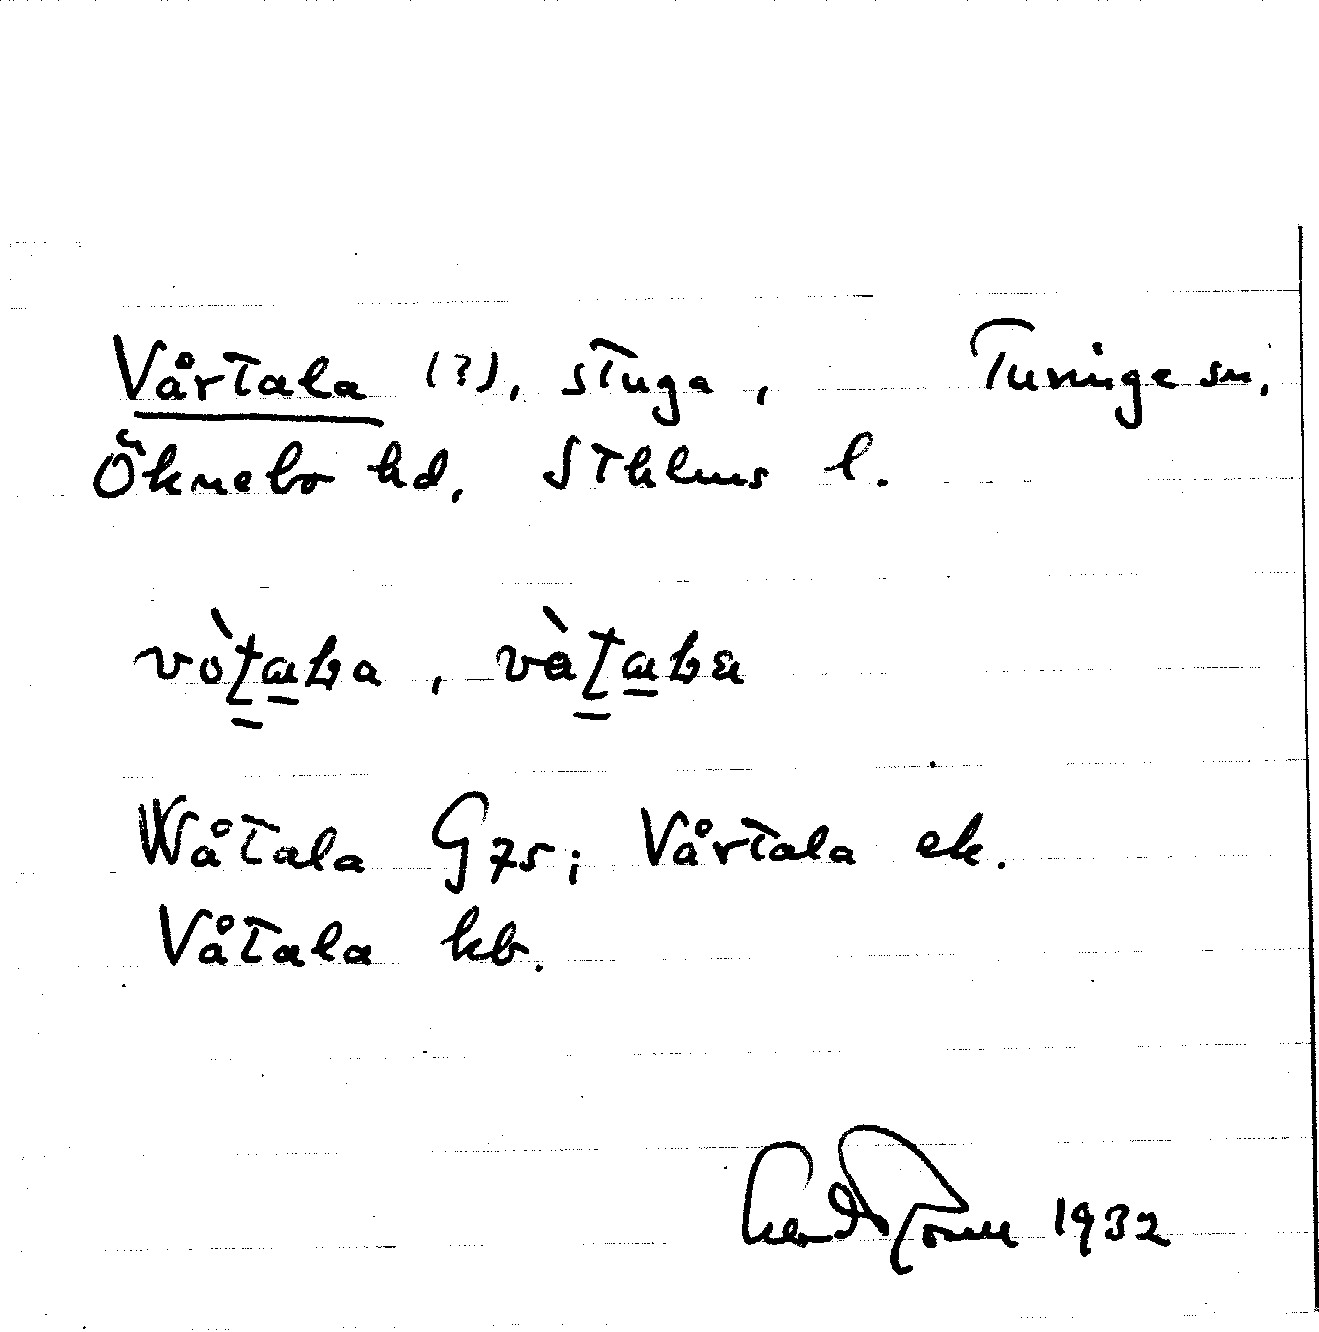 Vårtala (?), stuga, Turinge sn,
Öknebo hd, Sthlms l.
vò̱ta̱ɫa, và̱ta̱ɫa
Wåtala G75; Vårtala ek.
Våtala kb.
1932